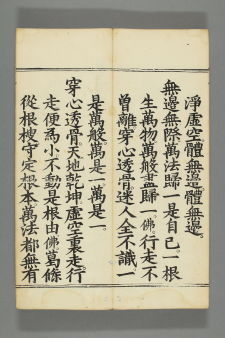 淨虛空體無邊體無邊
無邊無際萬法歸一是自己一根
生萬物萬般盡歸一佛行走不
曾離穿心透骨迷人全不識一
是萬般萬是一萬是一
穿心透骨天地乾坤虛空裏走行
走便為小不動是根由佛葛條
從根椶守定根本萬法都無有